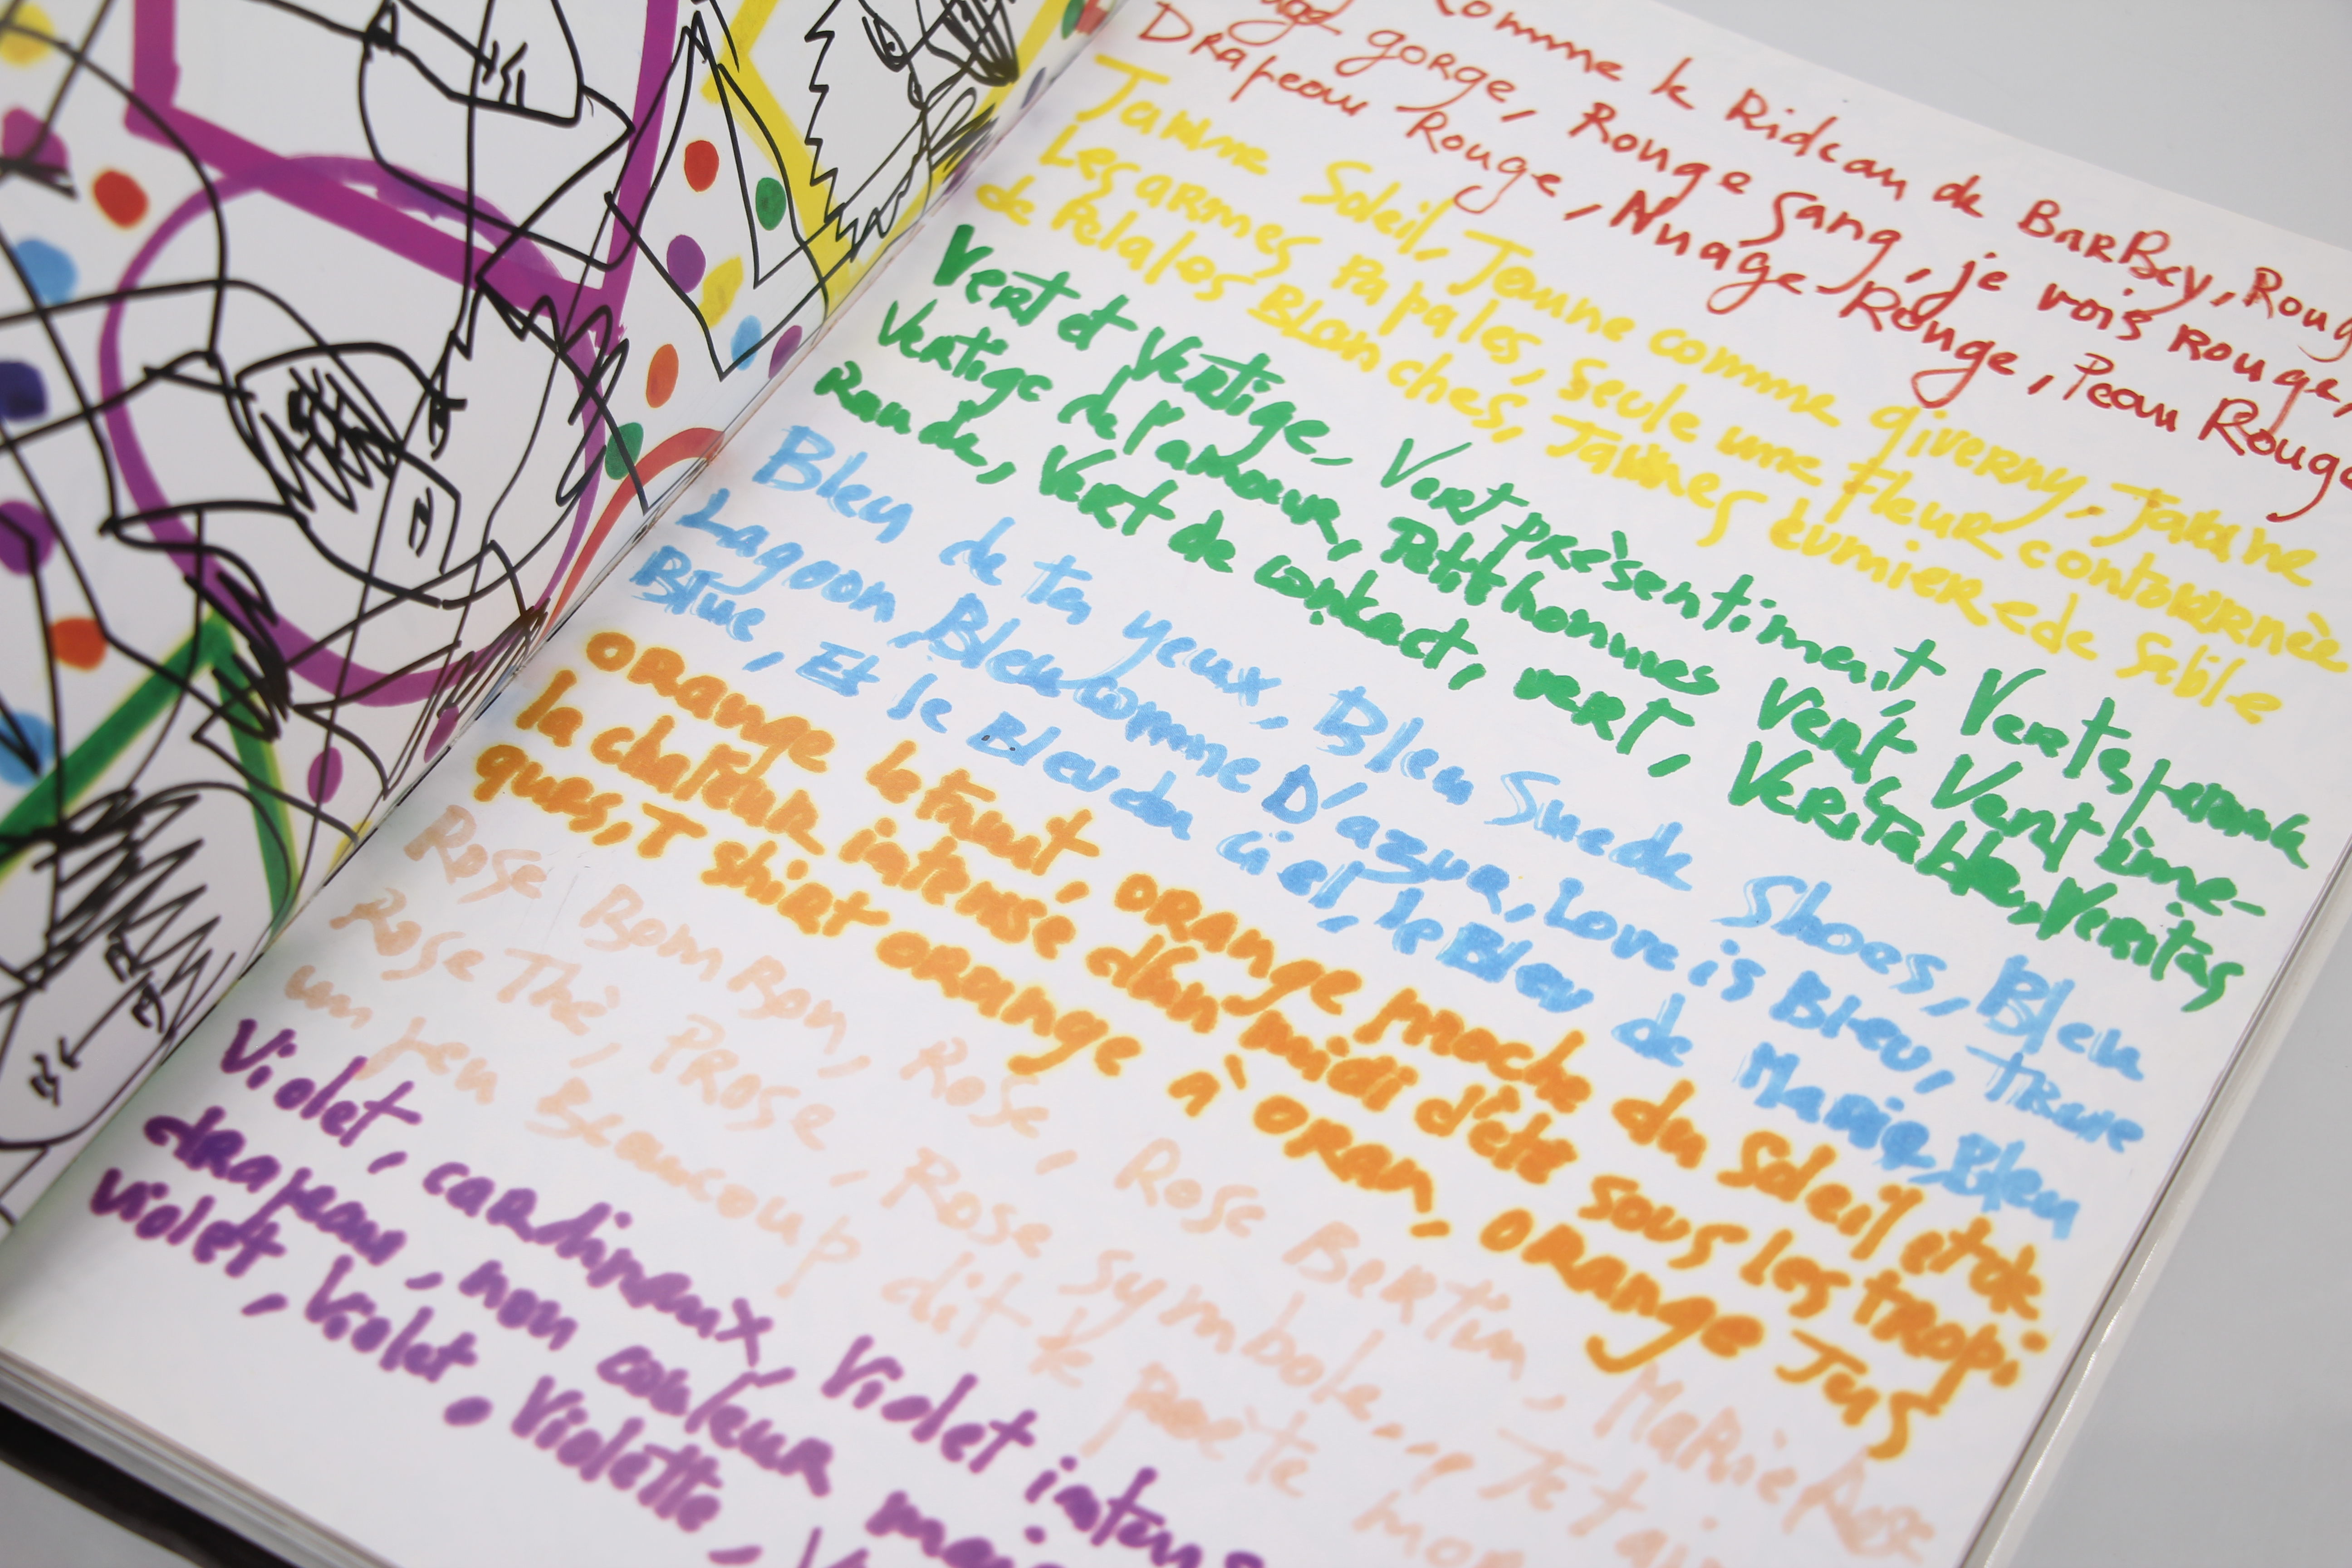 comme le Rideau de BarBey, Roug
gorge, Rouge Sang, je vois rouge,
Drapeau Rouge, Nuage Rouge, Peau Rouge
Jaune Soleil, Jaune comme giverny, Jaune
Les armes Papales, Seule une fleur contournèe
de Pelales BLanches, Jaunes Lumiere de Sable
Vert et Vertige - Vert prèsentiment, Vert sparade
Vertige de l'amour, Petit hommes Vert, Vert ème-
Raude, Vert de contact, vert, Veritable, Veritas
Bleu de tes yeux, Bleu Suede Shoes, Bleu
Lagoon, Bleu comme D'azur, Love is Bleu, True
Blue, Et le Bleu du ciel, le Bleu de Marie, Bleu
ORange le fruit, ORange moche du Soleil et de
la chaleur intense d'un midi d'été sous les tropi
ques, T shirt ORange à ORan, ORange Jus
Rose Bom Bon, Rose, Rose Bertin, MaRie Rose
Rose Thè, PRose, Rose symbole... Je t'ai
un peu Beaucoup dit le poète mon
Violet, cardinaux, Violet intens
drapeau, non couleur mais
violet, Violet, Violette,